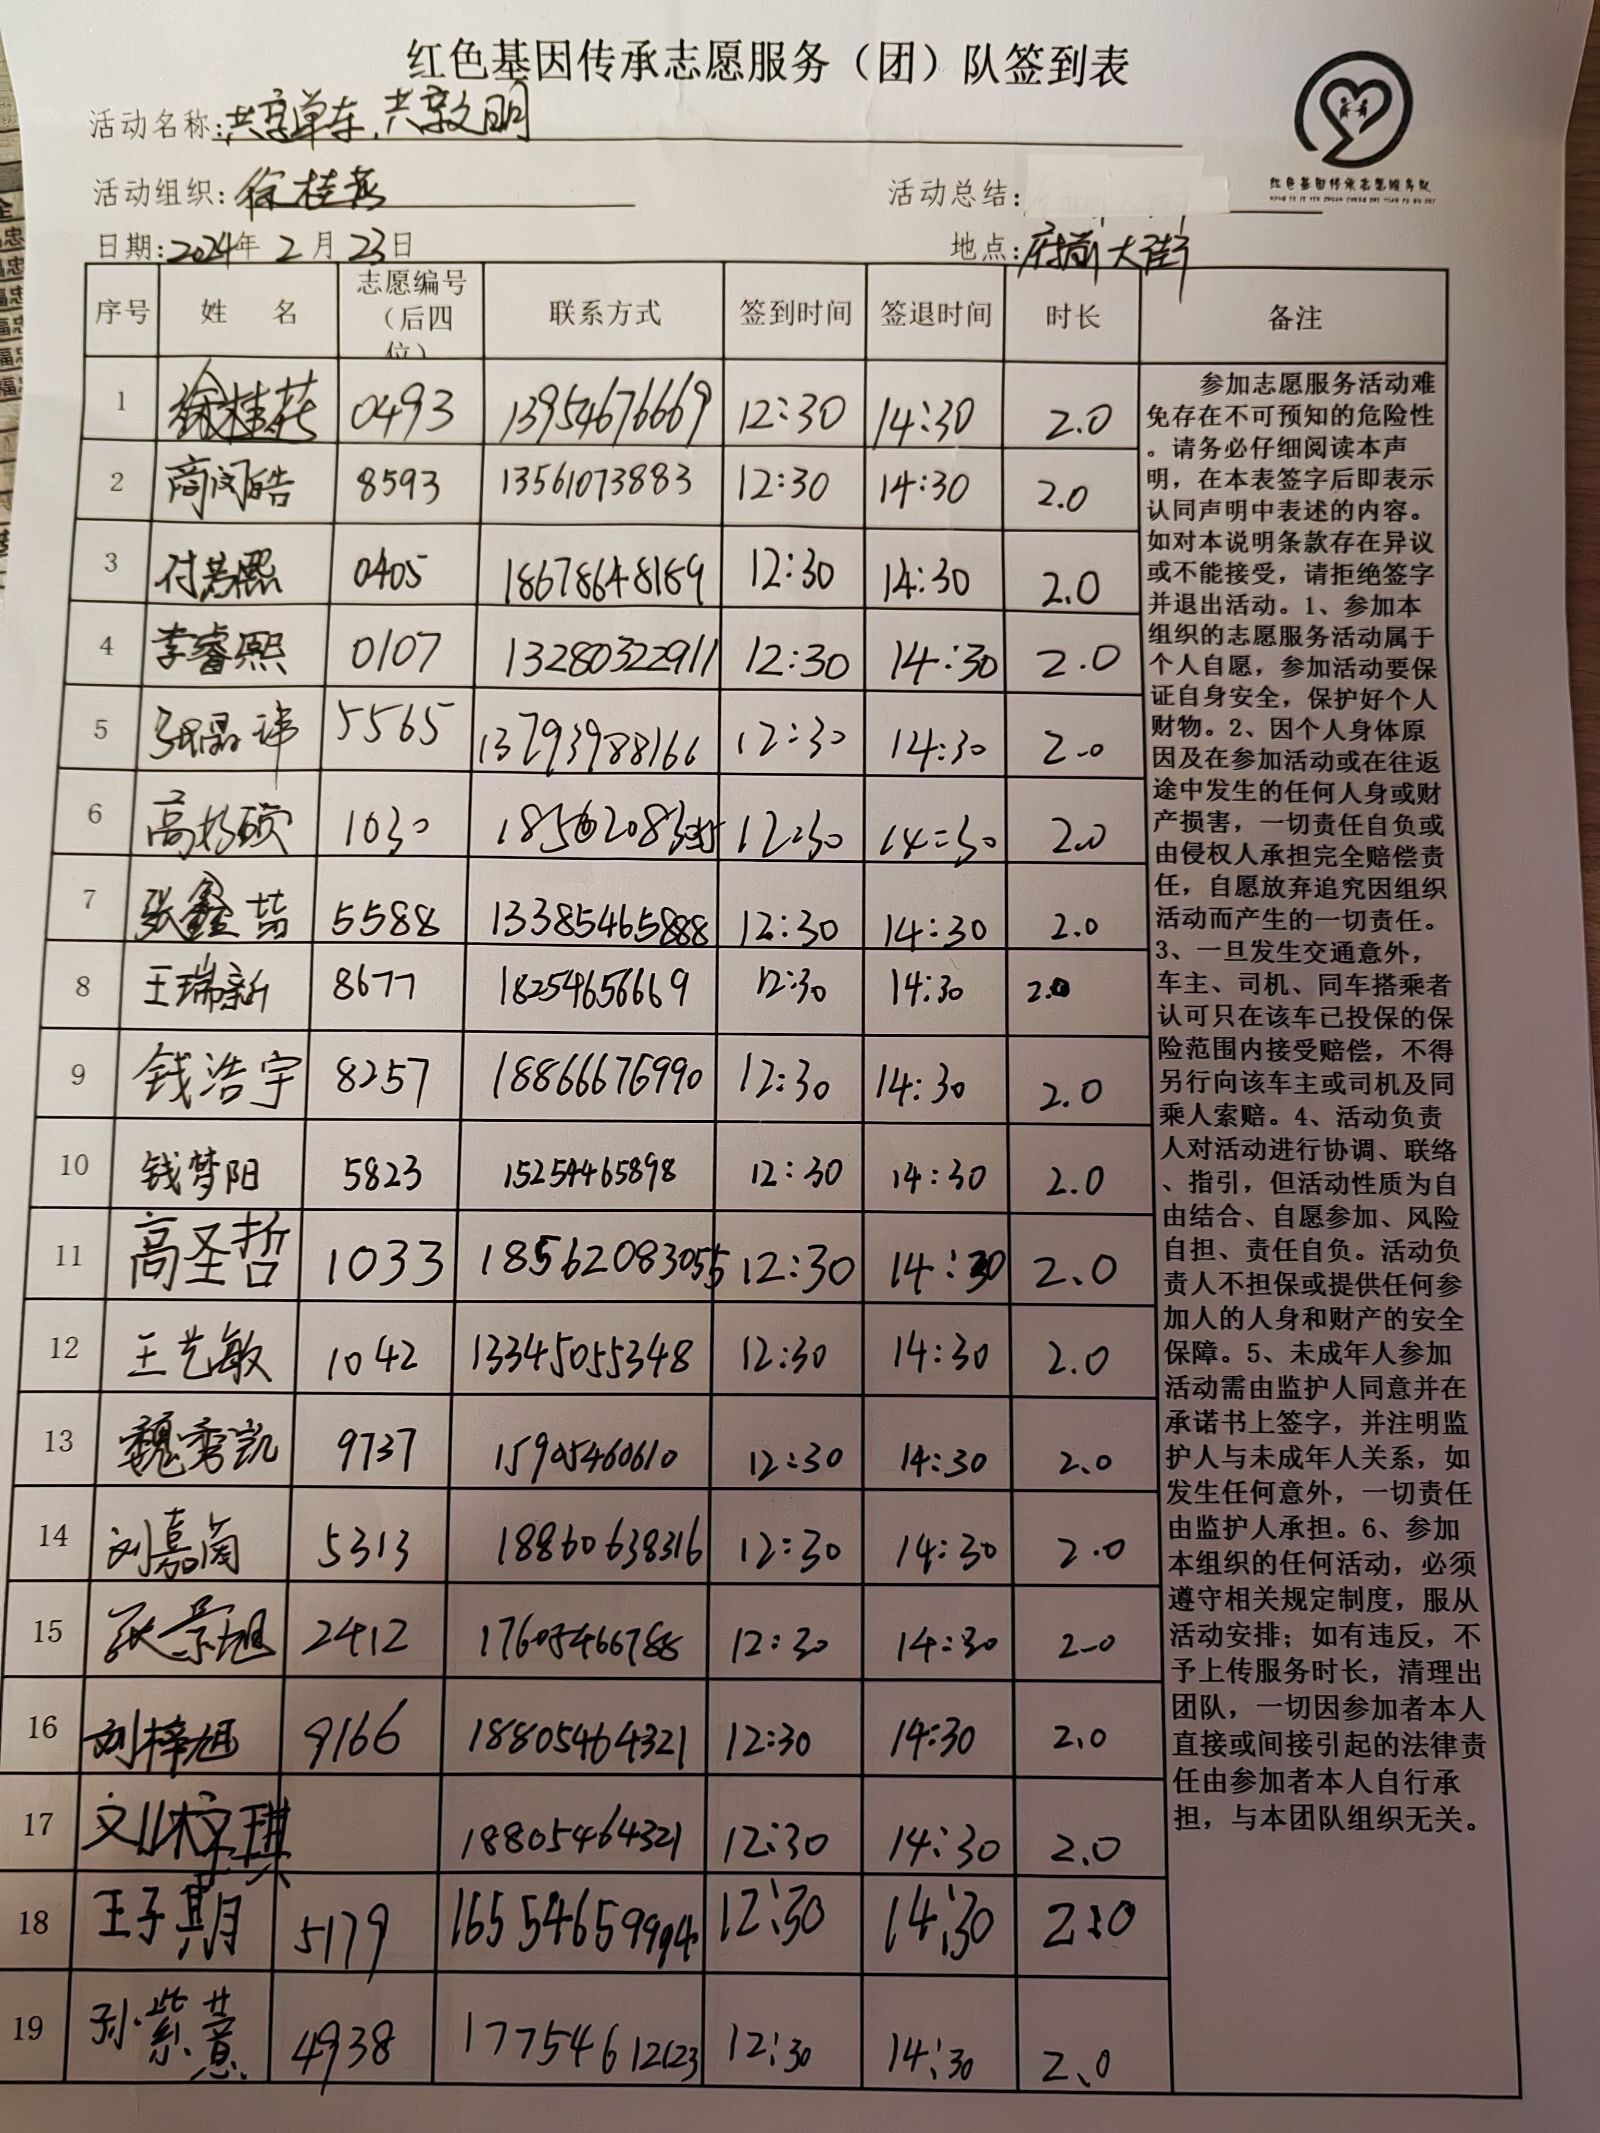 红色基因传承志愿服务（团）队签到表
活动名称:共享单车,共享文明
红色基因传承志愿服务队
活动组织:徐桂燕 活动总结:
日期:2024年2月23日 地点:府前大街
序号 姓 名 志愿编号（后四位） 联系方式 签到时间 签退时间 时长 备注
1 徐桂燕 0493 13954676669 12:30 14:30 2.0
2 商闵皓 8593 13561073883 12:30 14:30 2.0
3 付若熙 0405 18678648189 12:30 14:30 2.0
4 李睿熙 0107 13280322911 12:30 14:30 2.0
5 5565 13793988166 12:30 14:30 2.0
6 1030 12:30 14:30 2.0
7 5588 13385465888 12:30 14:30 2.0
8 王瑞新 8677 18254656669 12:30 14:30 2.0
9 钱浩宇 8257 18866676990 12:30 14:30 2.0
10 钱梦阳 5823 15254465898 12:30 14:30 2.0
11 高圣哲 1033 18562083055 12:30 14:30 2.0
12 王艺敏 1042 13345055348 12:30 14:30 2.0
13 魏秀凯 9737 15905460610 12:30 14:30 2.0
14 刘嘉茵 5313 18860638316 12:30 14:30 2.0
15 张景旭 2412 17605466788 12:30 14:30 2.0
16 刘梓旭 9166 18805464321 12:30 14:30 2.0
17 刘梓琪 18805464321 12:30 14:30 2.0
18 王子期 5179 12:30 14:30 2.0
19 孙紫薏 4938 12:30 14:30 2.0
参加志愿服务活动难
免存在不可预知的危险性
。请务必仔细阅读本声
明，在本表签字后即表示
认同声明中表述的内容。
如对本说明条款存在异议
或不能接受，请拒绝签字
并退出活动。1、参加本
组织的志愿服务活动属于
个人自愿，参加活动要保
证自身安全，保护好个人
财物。2、因个人身体原
因及在参加活动或在往返
途中发生的任何人身或财
产损害，一切责任自负或
由侵权人承担完全赔偿责
任，自愿放弃追究因组织
活动而产生的一切责任。
3、一旦发生交通意外，
车主、司机、同车搭乘者
认可只在该车已投保的保
险范围内接受赔偿，不得
另行向该车主或司机及同
乘人索赔。4、活动负责
人对活动进行协调、联络
、指引，但活动性质为自
由结合、自愿参加、风险
自担、责任自负。活动负
责人不担保或提供任何参
加人的人身和财产的安全
保障。5、未成年人参加
活动需由监护人同意并在
承诺书上签字，并注明监
护人与未成年人关系，如
发生任何意外，一切责任
由监护人承担。6、参加
本组织的任何活动，必须
遵守相关规定制度，服从
活动安排；如有违反，不
予上传服务时长，清理出
团队，一切因参加者本人
直接或间接引起的法律责
任由参加者本人自行承
担，与本团队组织无关。